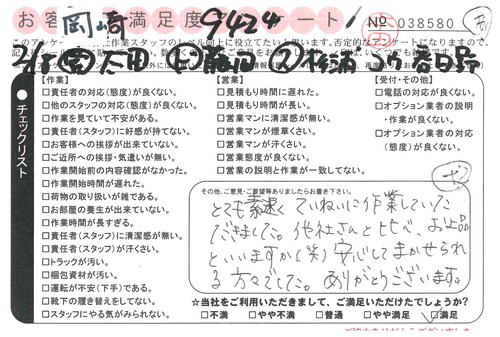 お客様満足度アンケート!
岡崎 9424
No 038580
【作業】
□責任者の対応(態度)が良くない。
□他のスタッフの対応(態度)が良くない。
□作業を見ていて不安がある。
□責任者(スタッフ)に好感が持てない。
□お客様への挨拶が出来ていない。
□ご近所への挨拶・気遣いが無い。
□作業開始前の内容確認がなかった。
□作業開始時間が遅れた。
□荷物の取り扱いが雑である。
□お部屋の養生が出来ていない。
□作業時間が長すぎる。
□責任者(スタッフ)に清潔感が無い。
□責任者(スタッフ)が汗くさい。
□トラックが汚い。
□梱包資材が汚い。
□運転が不安(下手)である。
□靴下の履き替えをしてない。
□スタッフにやる気がみられない。
チェックリスト
【営業】
□見積もり時間に遅れた。
□見積もり時間が長い。
□営業マンに清潔感が無い。
□営業マンが煙草くさい。
□営業マンが汗くさい。
□営業態度が良くない。
□営業の説明と作業が一致してない。
【受付・その他】
□電話の対応が良くない。
□オプション業者の説明
・作業が良くない。
□オプション業者の対応
(態度)が良くない。
その他、ご意見・ご要望等ありましたらお書き下さい。
とても素速く ていねいに作業していた
だきました。他社さんと比べ、お上品
といいますか(笑) 安心してまかせられ
る方々でした。ありがとうございます。
☆当社をご利用いただきまして、ご満足いただけたでしょうか?
□不満 □やや不満 □普通 □やや満足 □満足